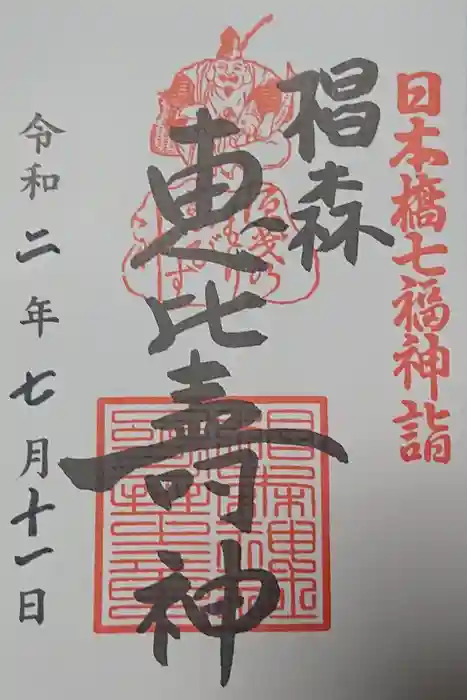 日本橋七福神詣
椙森
恵比壽神
令和二年七月十一日